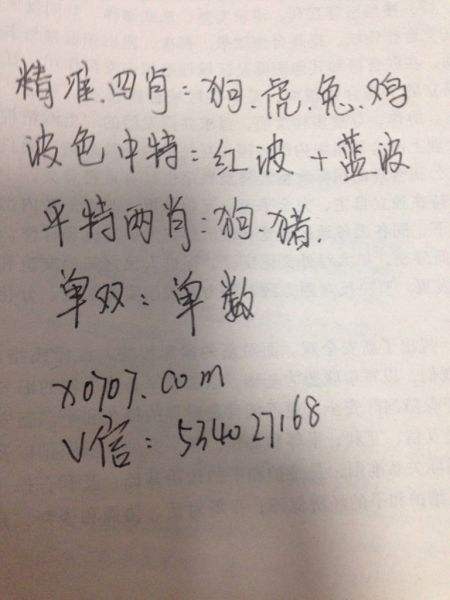 精准.四肖:狗.虎.兔.鸡
波色中特:红波+蓝波
平特两肖:狗.猪.
单双:单数
x0707.com
V信:534027168